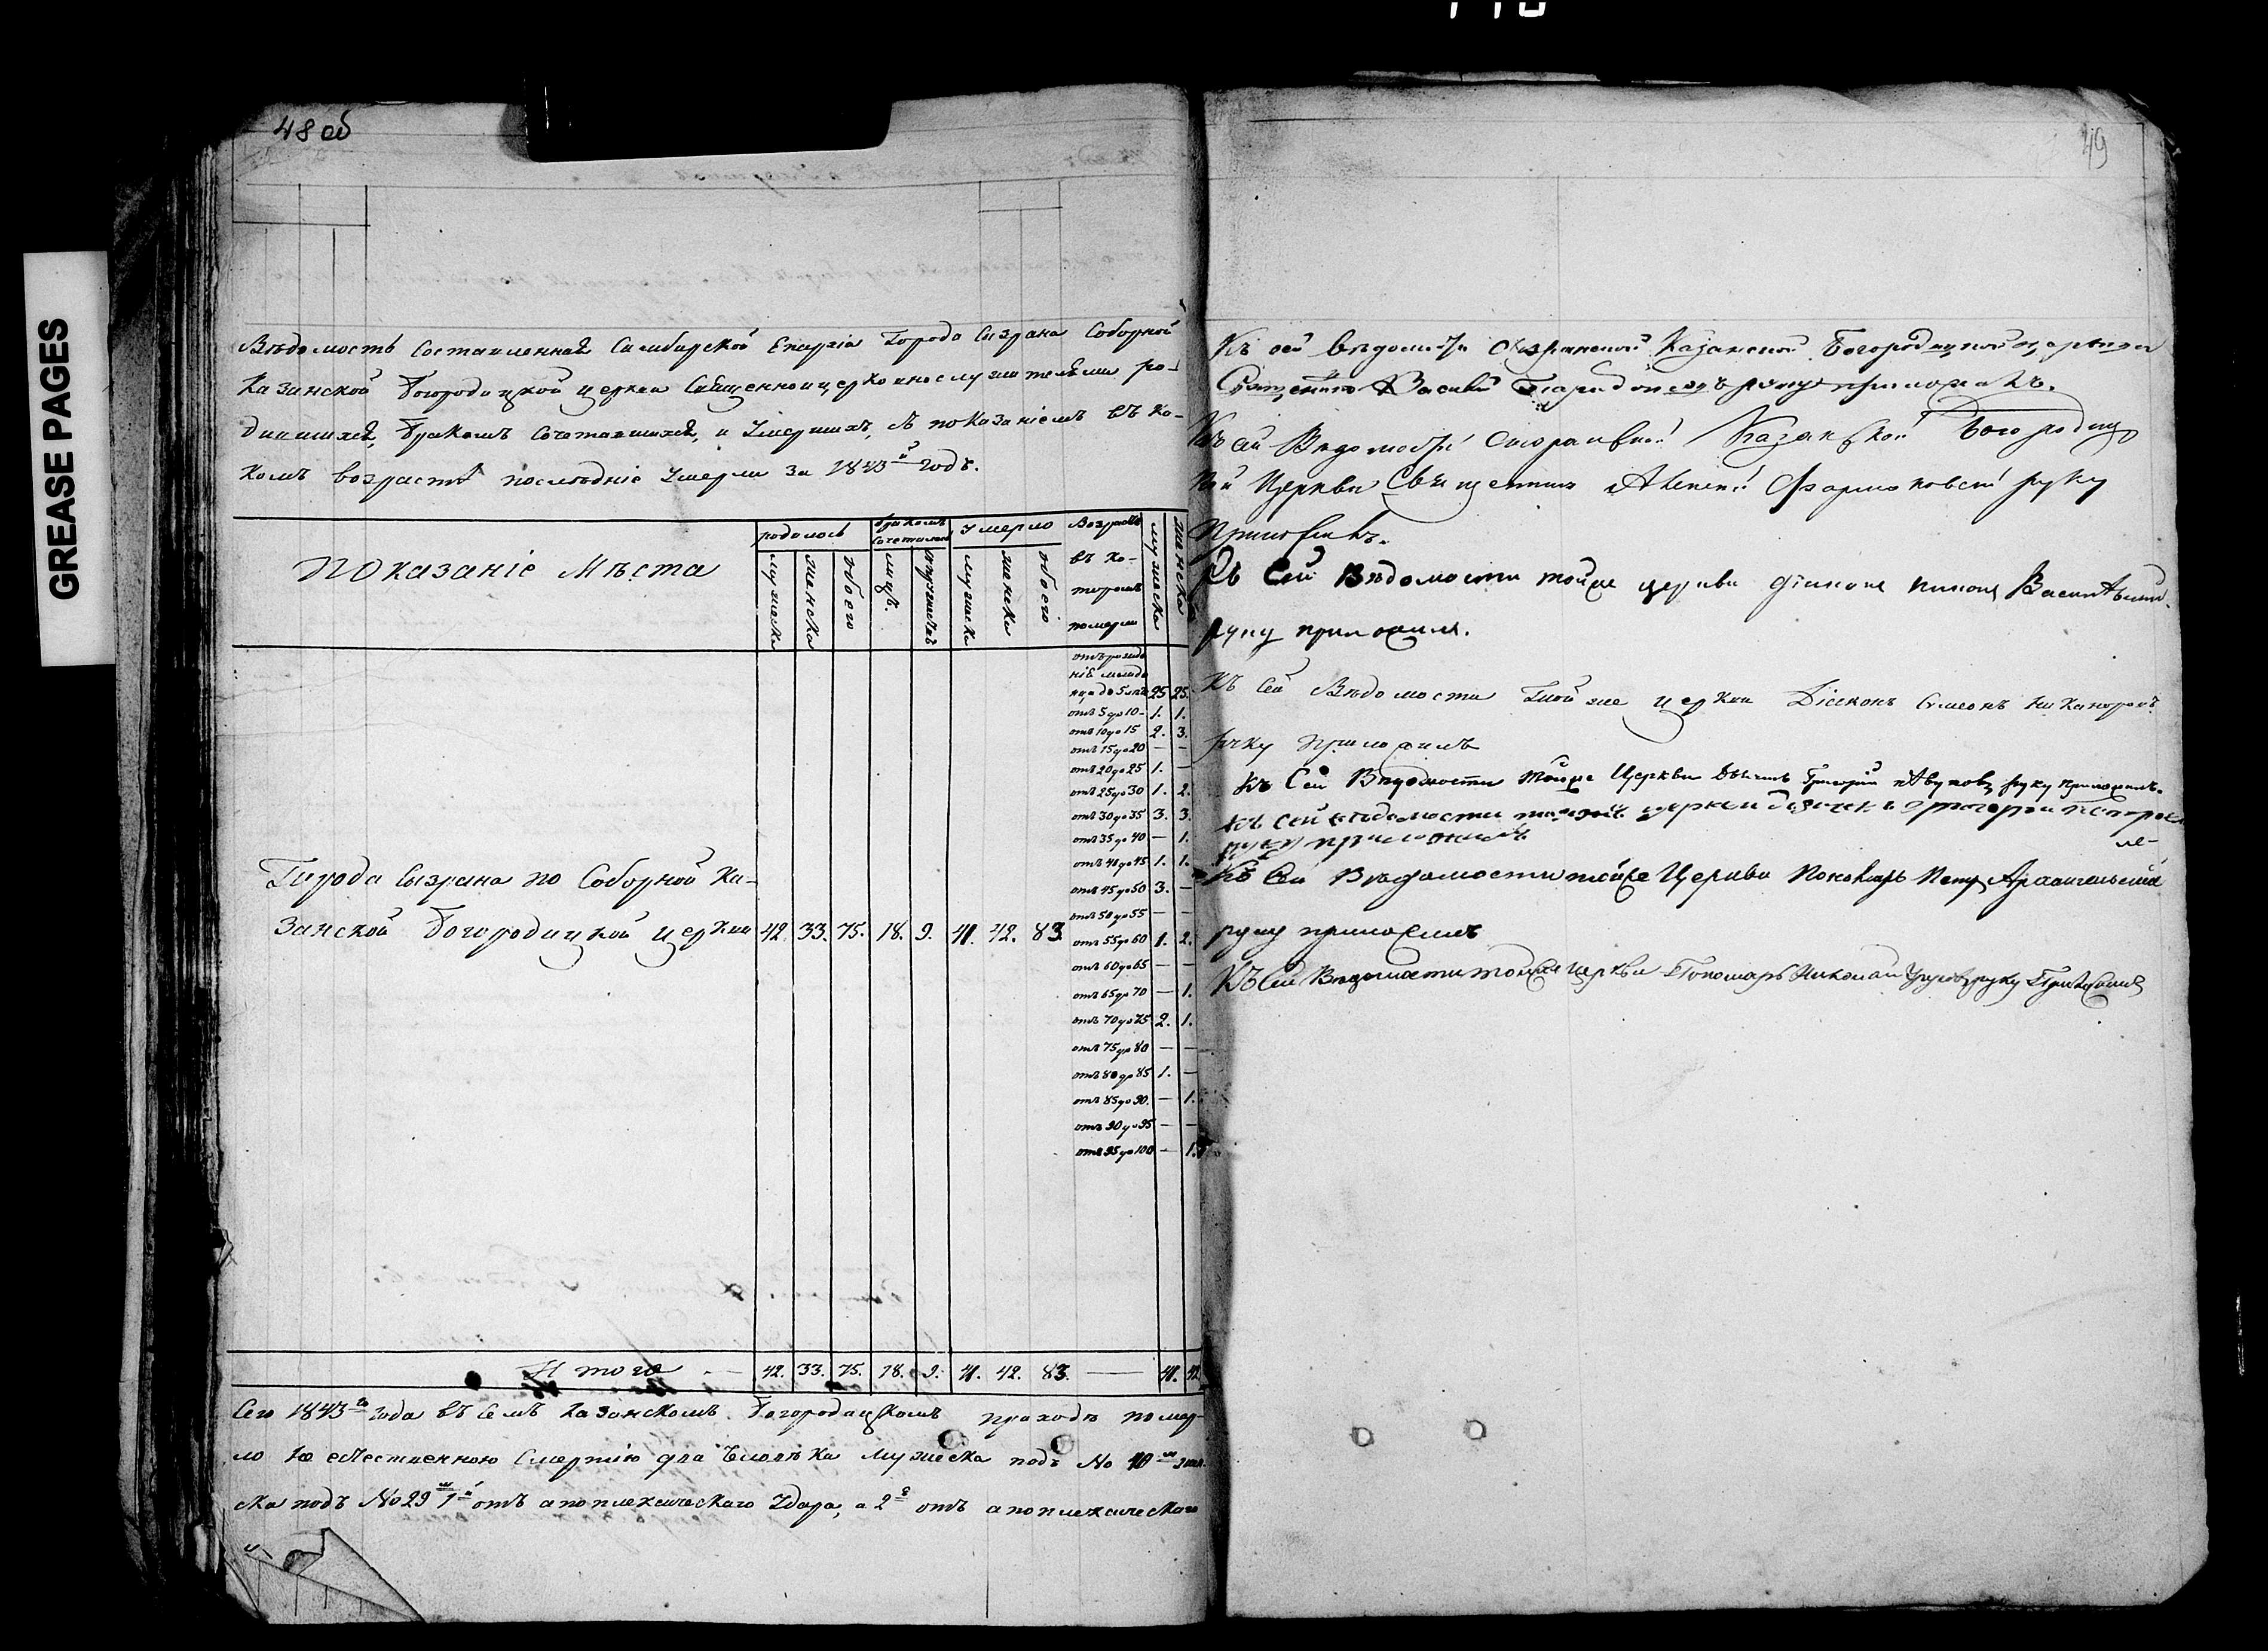 GREASE PAGES
48 об
49
Вѣдомость составленная Симбирской Епархіи Города Сызрана Соборной
Казанской Богородицкой церкви Священноцерковнослужителями ро-
дившихся, бракомъ сочетавшихся, и умершихъ, съ показаніемъ въ ко-
комъ возрастѣ послѣдніе умерли за 1843й годъ.
Показаніе Мѣста
родилось
бракомъ сочеталось
умерло
Возрастъ въ ко-
торомъ
померли
мужеска
женска
обоего
лицъ.
супружествъ
мужеска
женска
обоего
мужеска
женска
отъ рожде
нія младе
нца до 5 лѣтъ 25 25.
отъ 5 до 10 - 1. 1.
отъ 10 до 15 2. 3.
отъ 15 до 20 — —
отъ 20 до 25 1. —
отъ 25 до 30 1. 2.
отъ 30 до 35 3. 3.
отъ 35 до 40 — 1.
отъ 40 до 45 1. 1.
отъ 45 до 50 3. —
отъ 50 до 55 — —
отъ 55 до 60 1. 2.
отъ 60 до 65 — —
отъ 65 до 70 — 1.
отъ 70 до 75 2. 1.
отъ 75 до 80 — —
отъ 80 до 85 1. —
отъ 85 до 90. — 1.
отъ 90 до 95 — —
отъ 95 до 100 — 1.
Города Сызрана по Соборной Ка-
занской Богородицкой церкви 42. 33. 75. 18. 9. 41. 42. 83.
Итого — 42. 33. 75. 18. 9. 41. 42. 83. — 41. 42
Сего 1843го года въ семъ Казанскомъ Богородицкомъ приходѣ помер-
ло естественною смертію два человѣка мужеска подъ No 10м
ска подъ No 29м 1й отъ апоплексическаго удара, а 2й отъ апоплексическаго
Къ сей вѣдомости Сызранской Казанской Богородицкой церкви
Священникъ Василий руку приложилъ.
Къ сей Вѣдомости Сызранской Казанской Богородиц
кой Церкви Священникъ Алексей руку
Приложилъ.
Къ сей Вѣдомости тойже церкви діаконъ
руку приложилъ.
Къ сей Вѣдомости тойже церкви Діаконъ Симеонъ Никаноровъ
руку приложилъ
Къ Сей Вѣдомости тойже Церкви Дьячекъ Григорій руку приложилъ.
Къ сей вѣдомости тойже церкви дьячекъ Григорей
руку приложилъ
Къ Сей Вѣдомости тойже Церкви Пономарь Петръ Архангельскій
руку приложилъ
Къ Сей Вѣдомости тойже Церкви Пономарь Николай руку Приложилъ